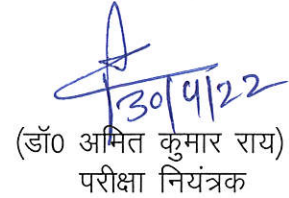 30/4/22
(डॉ0 अमित कुमार राय)
परीक्षा नियंत्रक